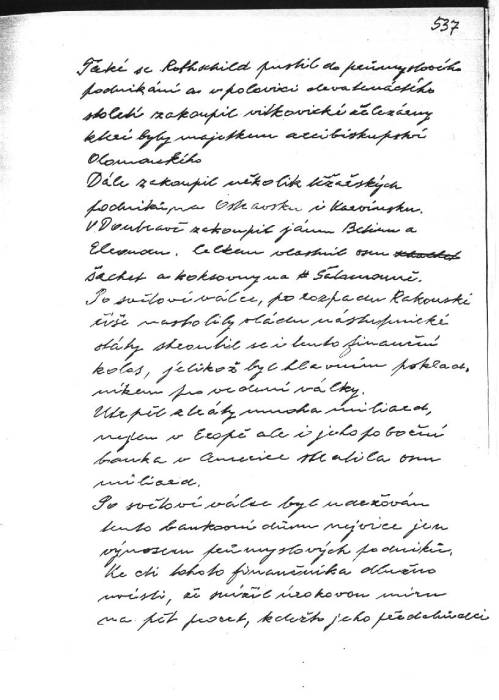 537
Také se Rothschild pustil do průmyslového
podnikání a v polovici devatenáctého
století zakoupil vítkovické železárny
které byly majetkem arcibiskupství
Olomouckého
Dále zakoupil několik těžařských
podniků na Ostravsku i Karvinsku.
V Doubravě zakoupil jámu Betinu a
Eleonoru. Celkem vlastnil osm
šachet a koksovny na Šalamouně.
Po světové válce, po rozpadu Rakouské
říše nastolily vládu nástupnické
státy zhroutil se i tento finanční
kolos, jelikož byl hlavním poklad,
níkem pro vedení války.
Utrpěl ztráty mnoha miliard,
nejen v Evropě ale i jeho pobočná
banka v Americe ztratila osm
miliard.
Po světové válce byl udržován
tento bankovní dům nejvíce jen
výnosem průmyslových podniků.
Ke cti tohoto finančníka dlužno
uvésti, že snížil úrokovou míru
na pět procent, kdežto jeho předchůdci